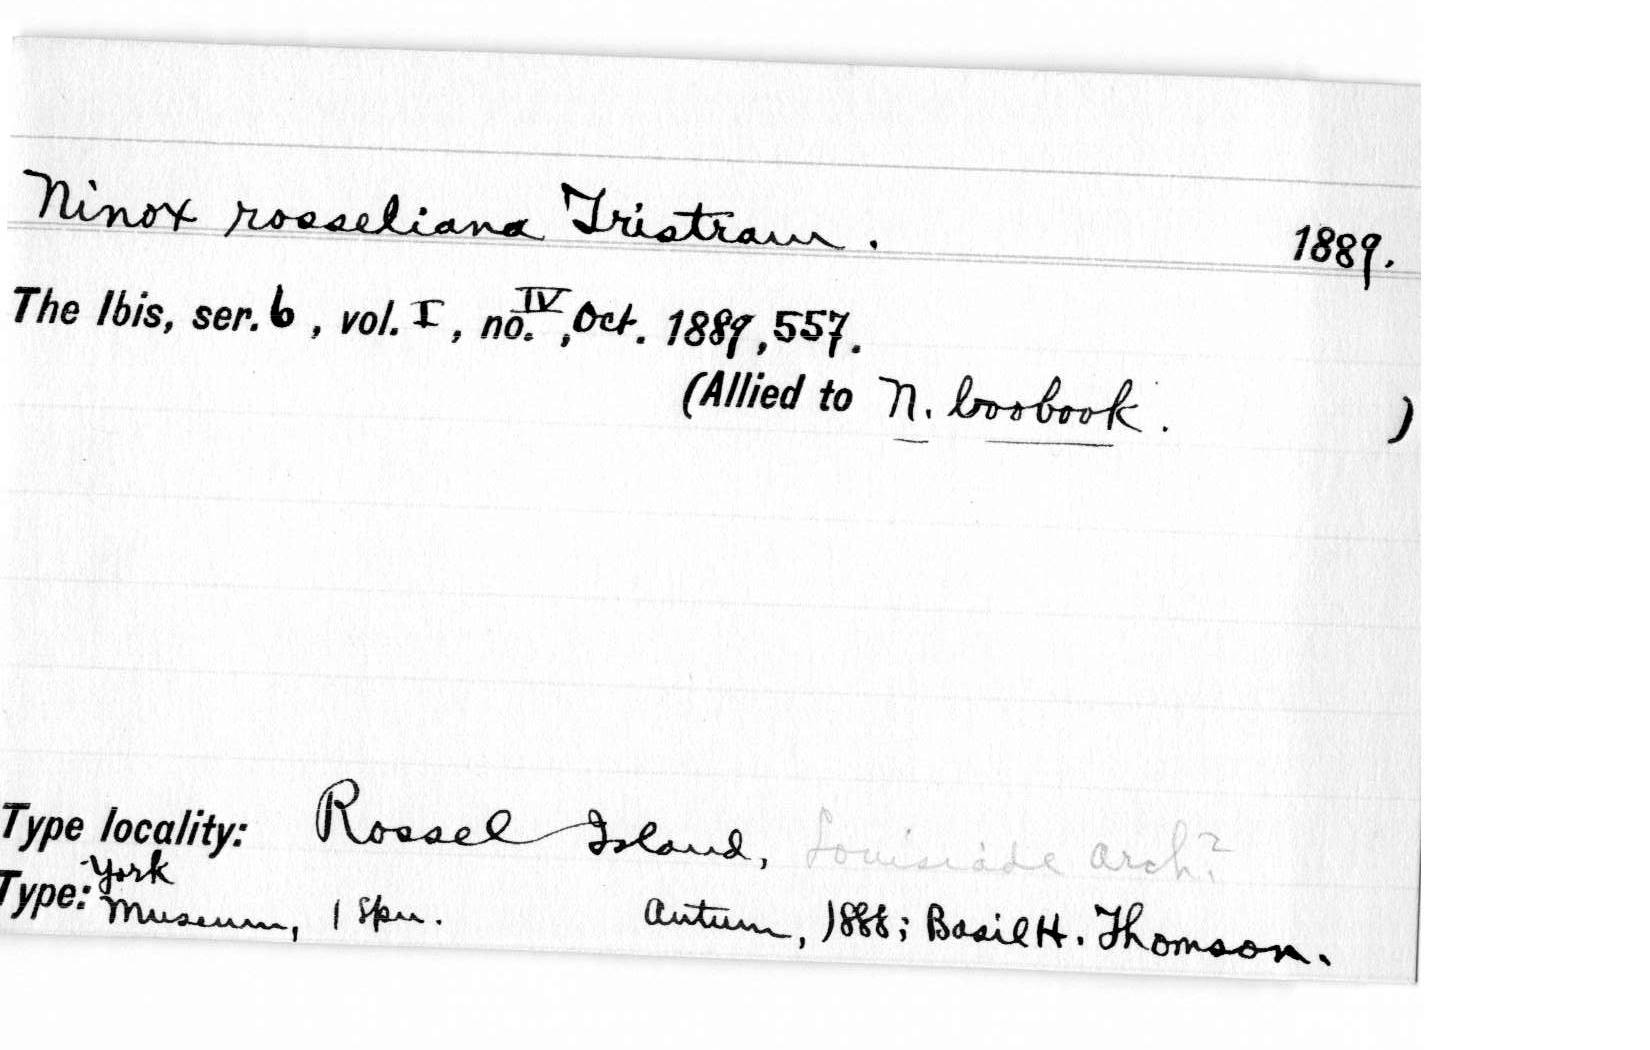 Ninox rosseliana Tristram. 1889.
The Ibis, ser. 6, vol. I, no. IV, Oct. 1889, 557.
(Allied to N. boobook. )
Type locality: Rossel Island, Louisiade Arch?
Type: York Museum, 1 Spn. Autum, 1888; Basil H. Thomson.